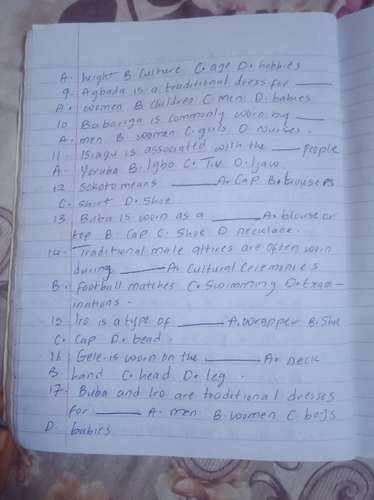 A. height B. Culture C. age D. hobbies
9. Agbada is a traditional dress for ___
A. women B. Children C. men D. babies
10 Babariga is commonly worn by ___
A. men B. women C. girls D. nurses.
11. Isiagu is associated with the ___ people
A Yoruba B. Igbo C. Tiv D. Ijaw
12 Sokoto means ___ A. Cap B. trousers
C. shirt D. Shoe
13 Buba is worn as a ___ A. blouse or
top B. Cap C. Shoe D. necklace.
14. Traditional male attires are often worn
during ___ A. Cultural Ceremonies
B. football matches C. Swimming D. Exam-
inations.
15 Iro is a type of ___ A. wrapper B. Shoe
C. Cap D. bead.
16 Gele is worn on the ___ A. neck
B. hand C. head D. leg.
17. Buba and Iro are traditional dresses
for ___ A. men B. women C. boys
D. babies